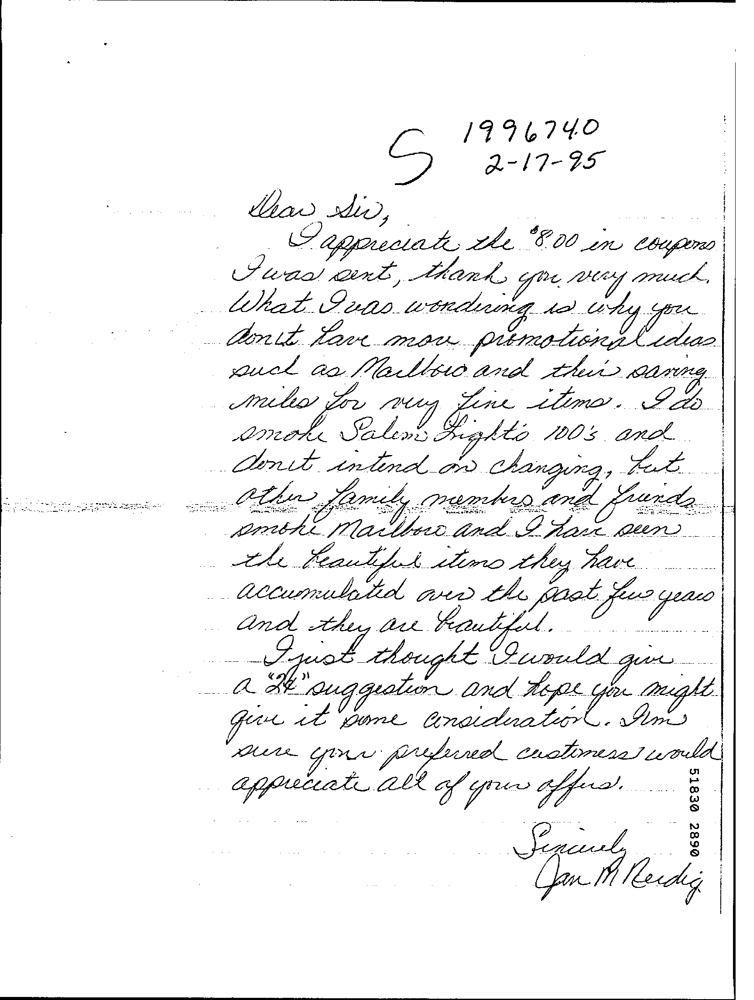 S 1996740
2-17-95
Dear Sir,
I appreciate the $8.00 in coupons
I was sent, thank you very much.
What I was wondering is why you
don't have more promotional ideas
such as Marlboro and their saving
miles for very fine items. I do
smoke Salem Light's 100's and
don't intend on changing, but
other family members and friends
smoke Marlboro and I have seen
the beautiful items they have
accumulated over the past few years
and they are beautiful.
I just thought I would give
a "2¢" suggestion and hope you might
give it some consideration. I'm
sure your preferred customers would
appreciate all of your offers.
Sincerely
Jan M
51830 2890